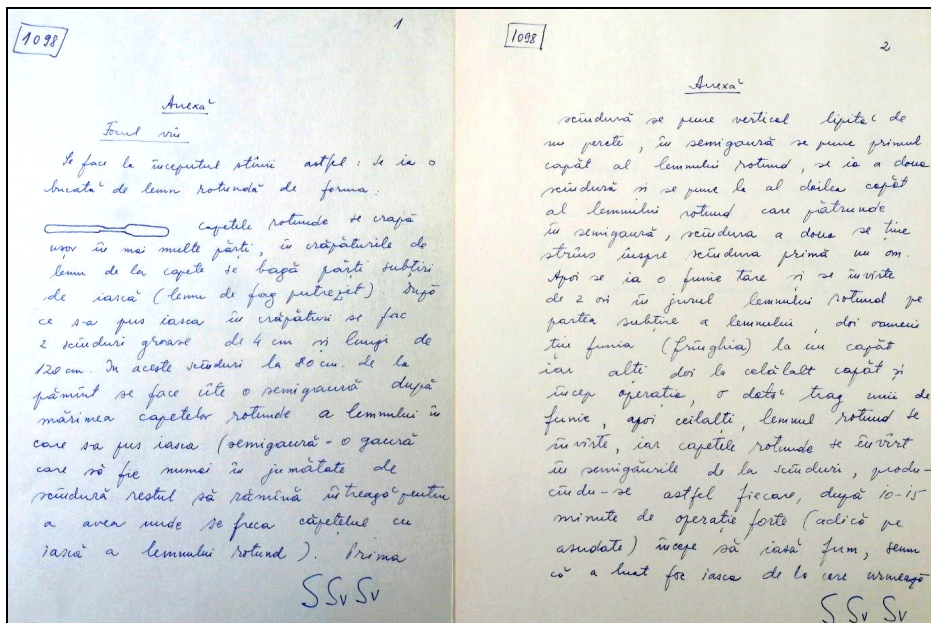 1098
1
Anexă
Focul viu
Se face la începutul stînii astfel: se ia o
bucată de lemn rotundă de forma:
capetele rotunde se crapă
ușor în mai multe părți, în crăpăturile de
lemn de la capete se bagă părți subțiri
de iască (lemn de fag putrezit). După
ce s-a pus iasca în crăpături se fac
2 scînduri groase de 4 cm și lungi de
120 cm. În aceste scînduri la 80 cm. de la
pămînt se face cîte o semigaură după
mărimea capetelor rotunde a lemnului în
care s-a pus iasca (semigaură - o gaură
care să fie numai în jumătate de
scîndură restul să rămînă întreagă pentru
a avea unde se freca căpețelul cu
iască a lemnului rotund). Prima
SSvSv
1098
2
Anexă
scîndură se pune vertical lipită de
un perete, în semigaură se pune primul
capăt al lemnului rotund, se ia a doua
scîndură și se pune la al doilea capăt
al lemnului rotund care pătrunde
în semigaură, scîndura a doua se ține
strîns înspre scîndura primă un om.
Apoi se ia o funie tare și se învîrte
de 2 ori în jurul lemnului rotund pe
partea subțire a lemnului, doi oameni
țin funia (frînghia) la un capăt
iar alți doi la celălalt capăt și
încep operația, o dată trag unii de
funie, apoi ceilalți, lemnul rotund se
învîrte, iar capetele rotunde se învîrt
în semigăurile de la scînduri, produ-
cîndu-se astfel fiecare, după 10-15
minute de operație forte (adică pe
asudate) începe să iasă fum, semn
că a luat foc iasca de la care urmează
SSvSv